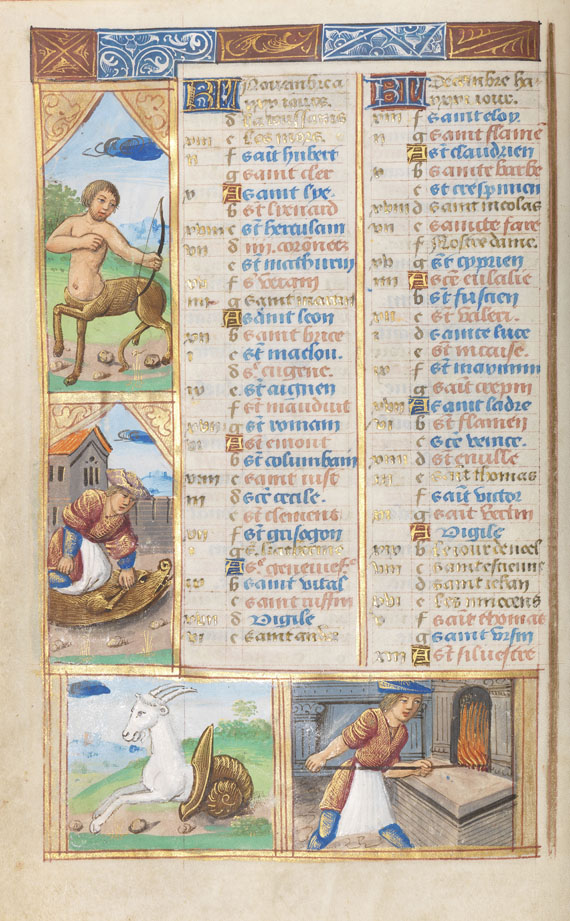 KL Novembre a
xxx iours.
d La toussains
xiii e Les mors.
ii f saīt hubert
g saint cler
x A saint lye.
b st lienard
xviii c st herculain
vii d iiii. coronez
e st mathurin
xv f s verain
iiii g saint martin
A saint leon
xii b saint brice
i c st maclou.
d s. eugene.
ix e st aignen
f st mauduit
xvii g st romain
vi A st emont
b st columbain
xiiii c saint iust
iii d sce cecile.
e st clemens
xi f st grisogon
g s. katherine
A s. genevief
b saint vital
c saint ruffin
d Vigile
e saint andri
KL Decembre ha
xxxi iour.
xiii f saint eloy
ii g saint flamē
A st claudien
x b sainte barbe
c st crespinien
xviii d saint nicolas
vii e saincte fare
f Nostre dame.
xv g st cyprien
iiii A sce eulalie
b st fuscien
xii c st valeri.
i d sainte luce
e st nicaise.
ix f st maximin
g sait crepin
xvii A saint ladre
vi b st flamen
c sce yeince.
xiiii d st eville
iii e saīt thomas
f saīt victor
xi g saīt Verlin
A Vigile
xix b le iour de noel
viii c saint estienne
d saint iehan
xvi e Les innocens
v f saīt thomas
g saint Vrsin
xiii A st silvestre